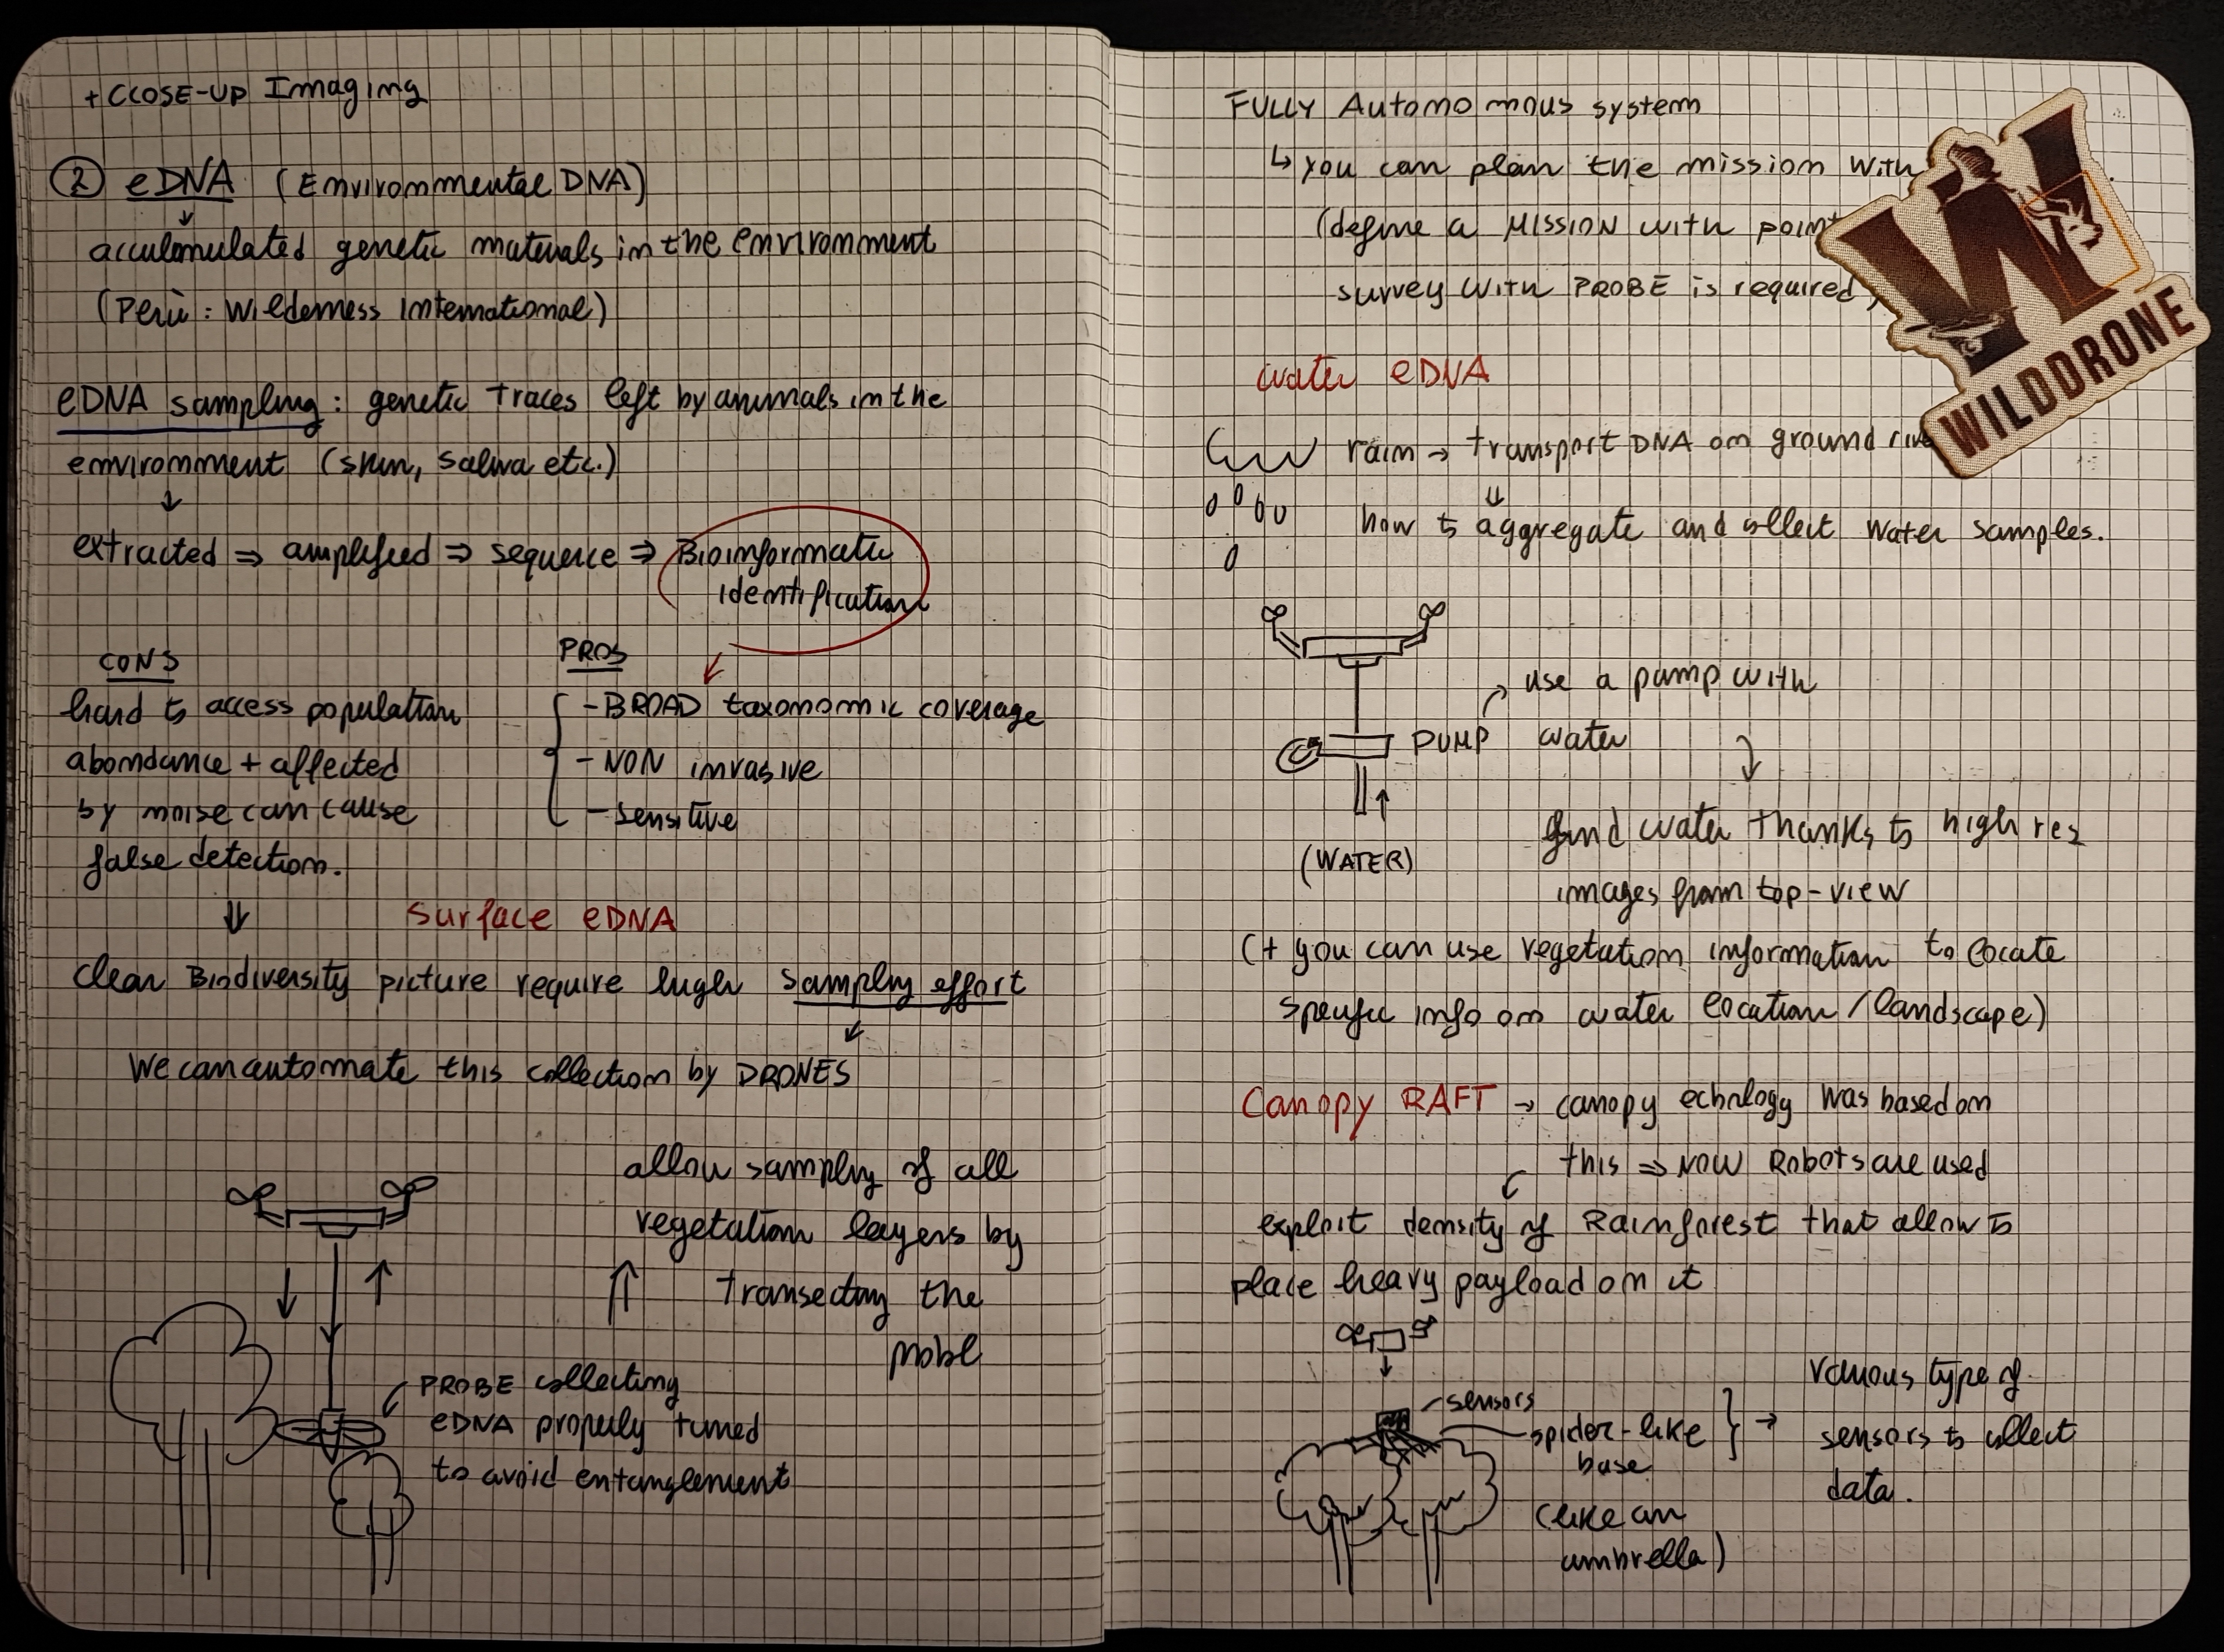 + CLOSE-UP Imaging
② eDNA (Environmental DNA)
↓
acculomulated genetic materials in the environment
(Perù: Wilderness International)
eDNA sampling: genetic traces left by animals in the
environment (skin, saliva etc.)
↓
extracted ⇒ amplified ⇒ sequence ⇒ Bioinformatic
identification
CONS
hard to access population
abondance + affected
by noise can cause
false detection.
PROS
- BROAD taxonomic coverage
- NON invasive
- sensitive
⇓
surface eDNA
clear Biodiversity picture require high sampling effort
We can automate this collection by DRONES
allow sampling of all
vegetation layers by
transecting the
PROBE collecting
eDNA properly tuned
to avoid entanglement
FULLY Autonomous system
↳ you can plan the mission with
(define a MISSION with
survey with PROBE is required
water eDNA
rain → transport DNA on ground
⇓
how to aggregate and collect water samples.
PUMP
use a pump with
water
(WATER)
find water thanks to high res
images from top-view
(+ you can use vegetation information to locate
specific info on water location/landscape)
Canopy RAFT → canopy echnology was based on
this ⇒ NOW Robots are used
exploit density of Rainforest that allow to
place heavy payload on it
sensors
spider-like
base
(like an
umbrella)
various type of
sensors to collect
data.
W
WILDDRONE